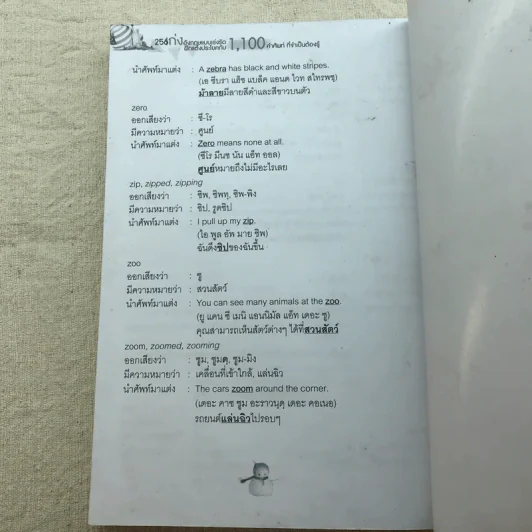 256 เก่งอังกฤษแบบเร่งรัด
ฝึกแต่งประโยคกับ 1,100 คำศัพท์ ที่จำเป็นต้องรู้
นำศัพท์มาแต่ง : A zebra has black and white stripes.
(เอ ซีบรา แฮ็ซ แบล็ค แอนด ไวท สไทรพซฺ)
ม้าลายมีลายสีดำและสีขาวบนตัว
zero
ออกเสียงว่า : ซี-โร
มีความหมายว่า : ศูนย์
นำศัพท์มาแต่ง : Zero means none at all.
(ซีโร มีนซ นัน แอ็ท ออล)
ศูนย์หมายถึงไม่มีอะไรเลย
zip, zipped, zipping
ออกเสียงว่า : ซิพ, ซิพทฺ, ซิพ-พิง
มีความหมายว่า : ซิป, รูดซิป
นำศัพท์มาแต่ง : I pull up my zip.
(ไอ พูล อัพ มาย ซิพ)
ฉันดึงซิปของฉันขึ้น
zoo
ออกเสียงว่า : ซู
มีความหมายว่า : สวนสัตว์
นำศัพท์มาแต่ง : You can see many animals at the zoo.
(ยู แคน ซี เมนิ แอนนิมัล แอ็ท เดอะ ซู)
คุณสามารถเห็นสัตว์ต่างๆ ได้ที่สวนสัตว์
zoom, zoomed, zooming
ออกเสียงว่า : ซูม, ซูมดฺ, ซูม-มิง
มีความหมายว่า : เคลื่อนที่เข้าใกล้, แล่นฉิว
นำศัพท์มาแต่ง : The cars zoom around the corner.
(เดอะ คาซ ซูม อะราวนฺดฺ เดอะ คอเนอ)
รถยนต์แล่นฉิวไปรอบๆ